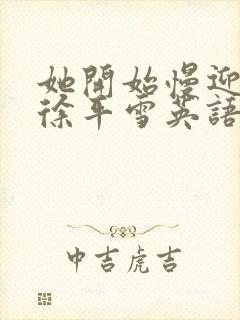 她開始慢迎
徐平雪英語
中吉虎吉